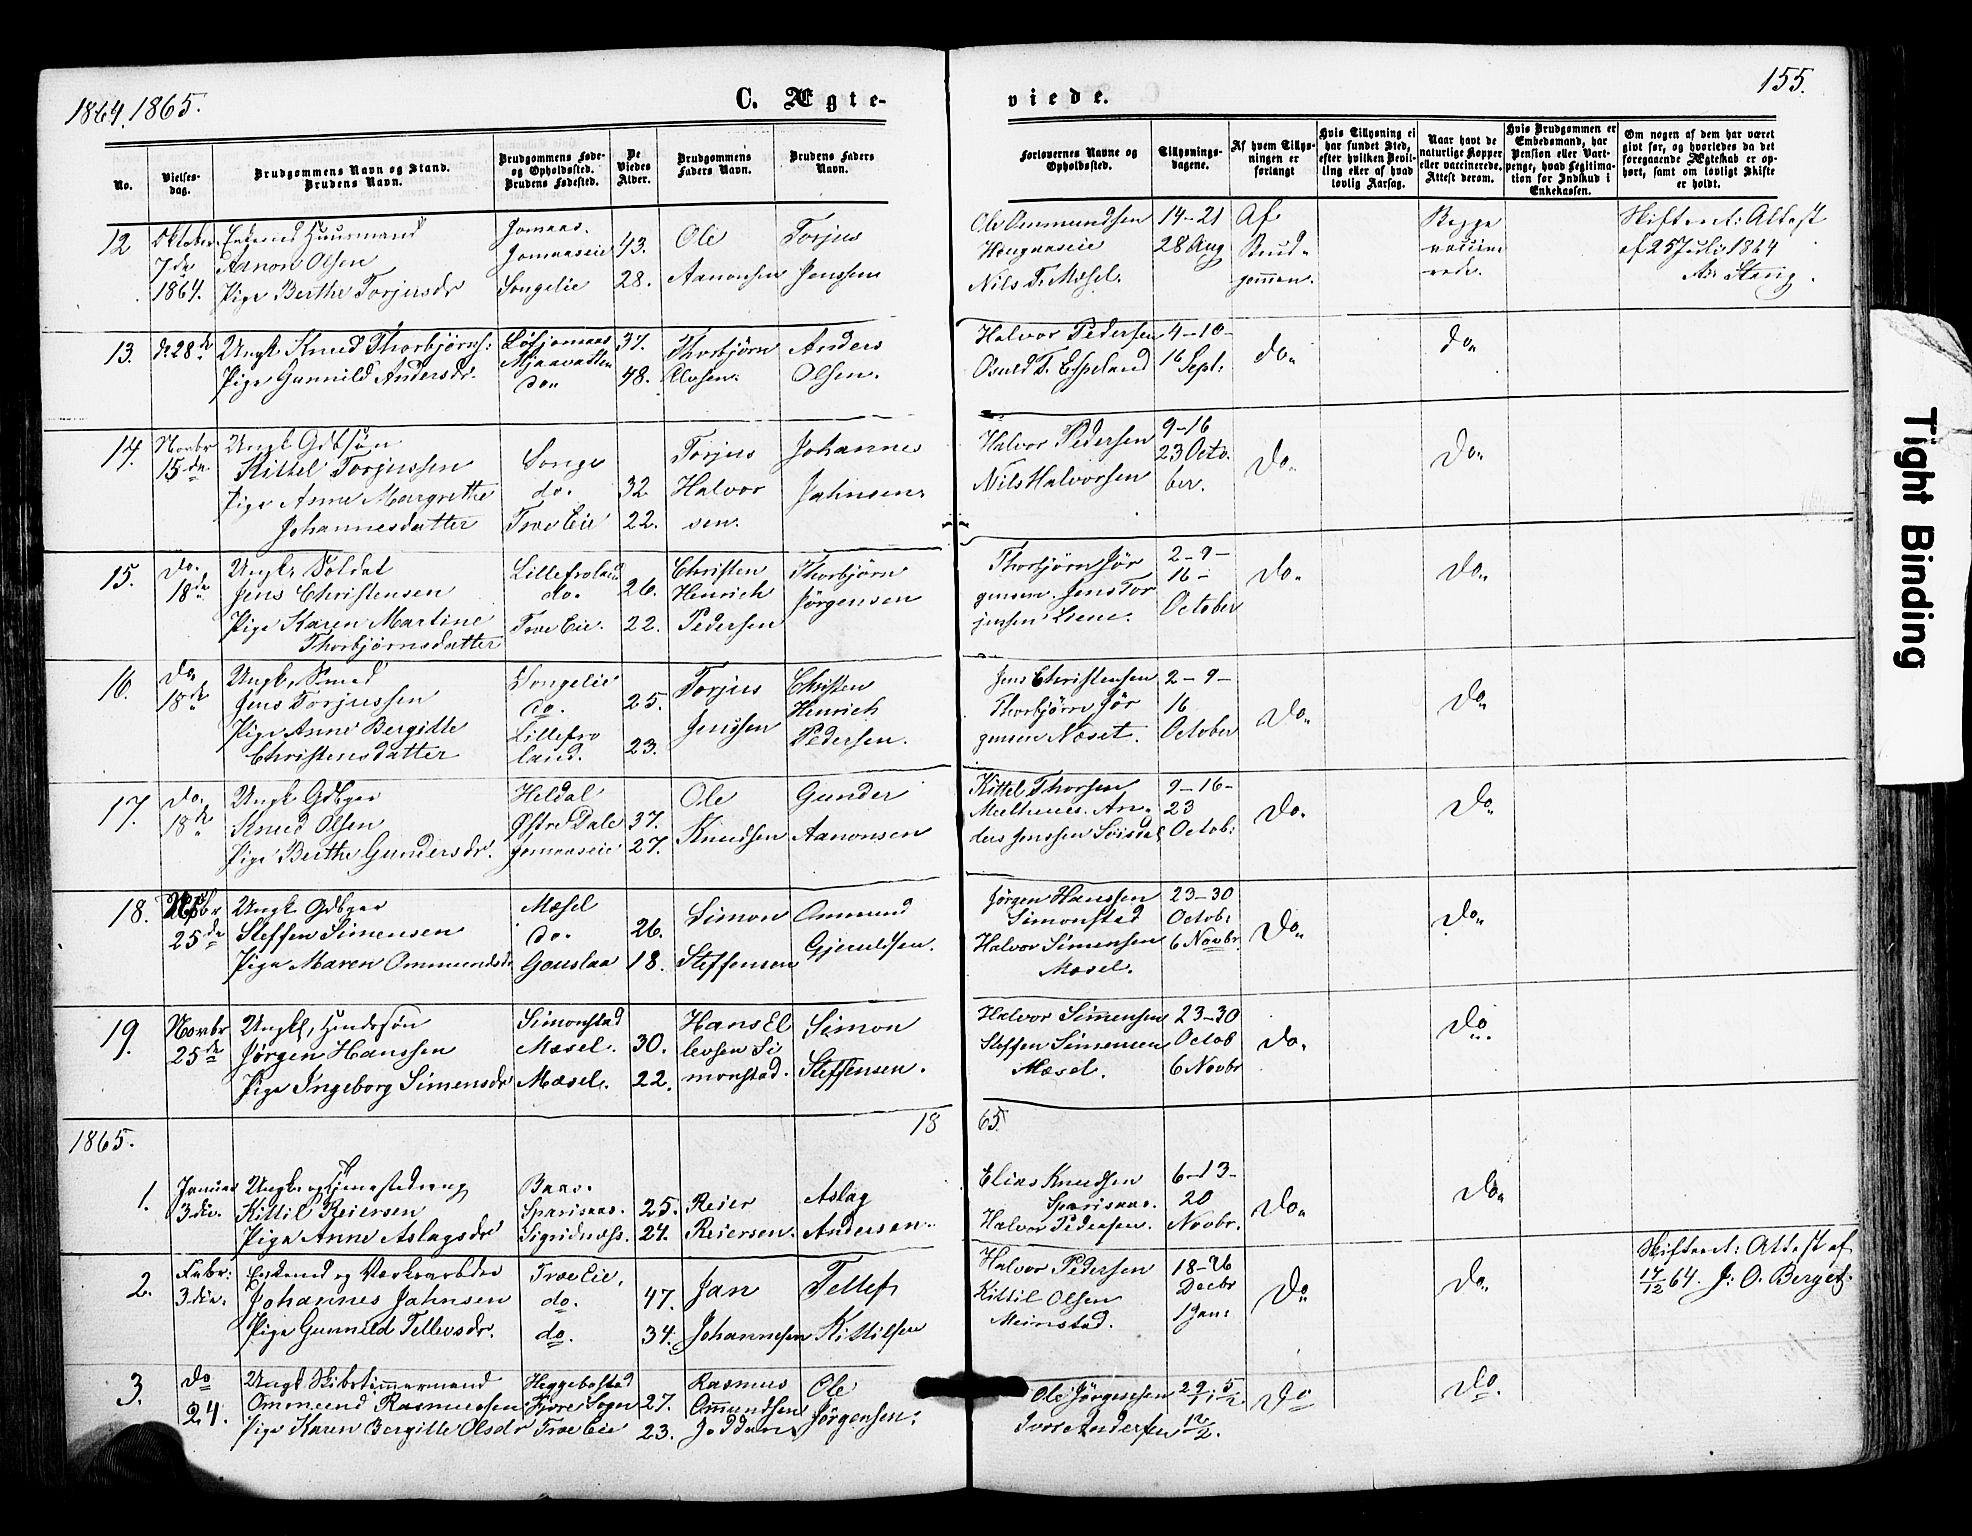 1864, 1865.
C. Ægte-
viede.
155.
No.
Vielses-
dag.
Brudgommens Navn og Stand.
Brudens Navn.
Brudgommens Føde-
og Opholdssted.
Brudens Fødested.
De
Viedes
Alder.
Brudgommens
Faders Navn.
Brudens Faders
Navn.
Forlovernes Navne og
Opholdssted.
Tillysnings-
dagene.
Af hvem Tillys-
ningen er
forlangt
Hvis Tillysning ei
har fundet Sted,
efter hvilken Bevil-
ling eller af hvad
lovlig Aarsag.
Naar havt de
naturlige Kopper
eller vaccinerede.
Attest derom.
Hvis Brudgommen er
Embedsmand, har
Pension eller Vart-
penge, hvad Legitima-
tion for Indskud i
Enkekassen.
Om nogen af dem har været
gift før, og hvorledes da det
foregaaende Ægteskab er op-
hørt, samt om lovligt Skifte
er holdt.
12
Oktober
7de
1864.
Enkemd Huusmand
Aanon Olsen
Pige Berthe Torjusdr
Jomaas.
Jomaaseie
Songeeie
43.
28.
Ole
Aanonsen
Torjus
Jenssen
Ole Ommundsen
Haugaaseie
Nils T. Mæsel.
14-21
28 Aug
Af
Brud-
gommen.
Begge
vaccine
rede.
Skifteret: Attest
af 25 Juli 1864
13.
d: 28de
Ungk. Knud Thorbjørns:
Pige Gunnild Andersdr.
Mjaavatten
do"
37.
48.
Thorbjørn
Olvsen.
Anders
Olsen.
Halvor Pedersen
Osuld T. Espeland
4-10-
16 Sept:
do"
do"
14.
Novbr
15de
Ungk. Gdbsøn
Kittel Torjussen
Pige Anne Margrethe
Johannesdatter
Songe
do.
Froe Eie
32
22.
Torjus
Halvor
sen.
Johannes
Jahnsen.
Halvor Pedersen
Nils Halvorsen
9-16
23 Octo.
ber.
Do"
Do"
15.
Do.
18de
Ungk. Soldat
Jens Christensen
Pige Karen Martine
Thorbjørnsdatter
Lillefroland
do.
Froe Eie.
26.
22.
Christen
Henrich
Pedersen
Thorbjørn
Jørgensen
Thorbjørn Jør
gensen. Jens Tor
jussen
2-9-
16-
October
Do"
Do"
16.
Do
18de
Ungk. Smed
Jens Torjussen
Pige Anne Bergitte
Christensdatter
Songeeie
do.
Lillefro
land.
25.
23.
Torjus
Jenssen
Christen
Hinrich
Pedersen.
Jens Christensen
Thorbjørn Jør
gensen Næset.
2-9-
16
October
Do"
Do"
17.
Do.
18de
Ungk. Gdbger
Knud Olsen
Pige Berthe Gundersdr.
Heldal
Østre Dale
Jomaaseie
37.
27.
Ole
Knudsen
Gunder
Aanonsen
Kittel Thorsen
An-
ders Jenssen
9-16-
23
Octob:
Do.
Do
18.
Novbr
25de
Ungk. Gdbger
Steffen Simensen
Pige Maren Ommundsdr
Mæsel
do.
Gauslaa
26.
18.
Simon
Steffensen
Ommund
Gjeruldsen.
Jørgen Hanssen
Simonstad
Halvor Simensen
Mæsel.
23-30
Octob:
6 Novbr.
Do"
Do"
19.
Novbr
25de
Jørgen Hanssen
Pige Ingeborg Simensdr
Simonstad
Mæsel.
Mæsel.
30.
22.
Hans El
levsen Si
monstad.
Simon
Steffensen.
Halvor Simensen
Steffen Simensen
Mæsel.
23-30
Octob
6 Novbr
Do.
Do.
1865.
18
65.
1.
Januar
3die.
Ungk. og Tjenestedreng
Kittil Reiersen
Pige Anne Aslagsdr
Baas.
Sparisaas.
Sigridnæss.
25.
24.
Reier
Reiersen.
Aslag
Andersen.
Elias Knudsen
Sparisaas.
Halvor Pedersen.
6-13-
20
Novbr.
Do"
Do"
2.
Febr:
3die.
Enkemd og Værksarbder
Johannes Jahnsen
Pige Gunnild Tellevsdr.
Froe Eie.
do.
do.
47.
34.
Jan
Johannesen
Tellef
Kittilsen
Halvor Pedersen
Kittil Olsen
Meinstad.
18-26
Decbr
1 Jan:
Do"
Do"
Skifteret: Attest af
17/12 64. J: O. Berget.
3.
Do
24.
Ungk Skibstimmermand
Ommund Rasmussen
Pige Karen Bergitte Olsdr
Heggebostad
Fjære Sogn
Froe Eie
27.
23.
Rasmus
Ommundsen
Ole
Jørgensen.
Ole Jørgensen
Iver Andersen
29/1, 5/2
12/2.
Do
Do.
Tight Binding